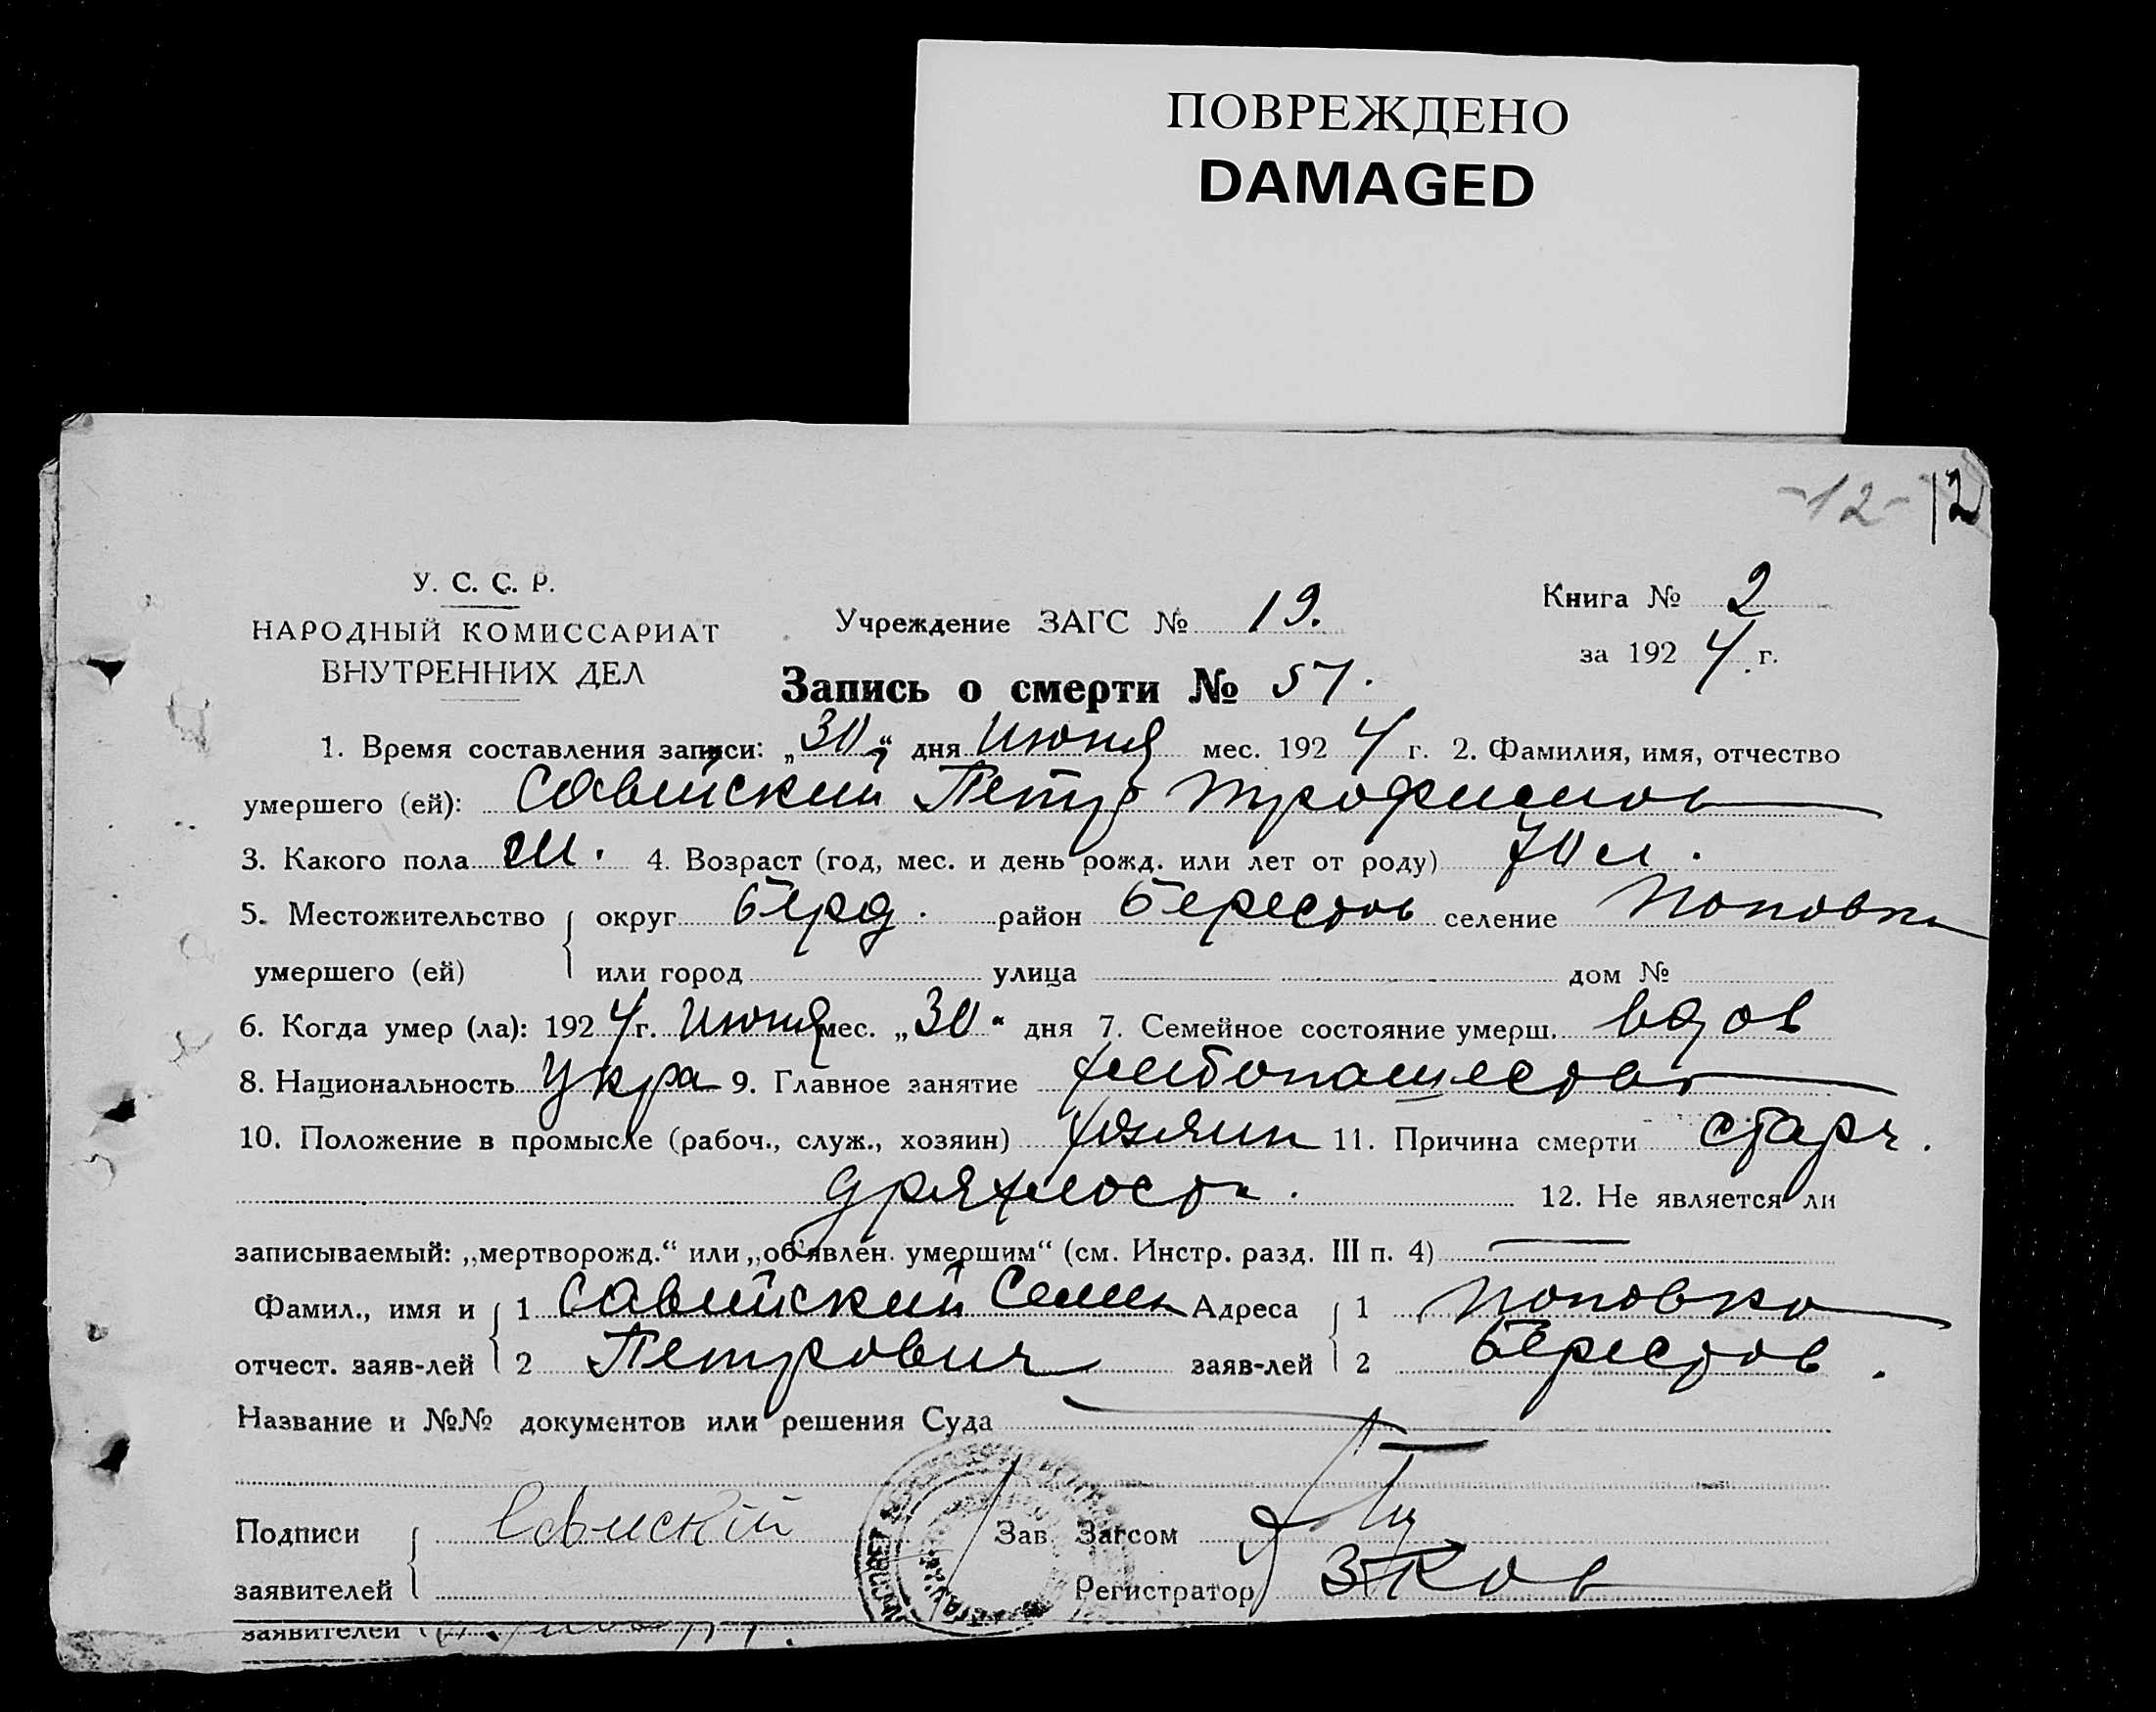 ПОВРЕЖДЕНО
DAMAGED
-12- 12
У. С. С. Р.
НАРОДНЫЙ КОМИССАРИАТ
ВНУТРЕННИХ ДЕЛ
Учреждение ЗАГС № 19.
Книга № 2
за 1924 г.
Запись о смерти № 57.
1. Время составления записи: „30“ дня Июня мес. 1924 г. 2. Фамилия, имя, отчество
умершего (ей): Савийский Петр Трофимов
3. Какого пола м. 4. Возраст (год, мес. и день рожд. или лет от роду) 70 л.
5. Местожительство округ Берд. район Берестов селение Поповка
умершего (ей) или город улица дом №
6. Когда умер (ла): 1924 г. Июня мес. „30“ дня 7. Семейное состояние умерш. вдов
8. Национальность Укра 9. Главное занятие хлебопашество
10. Положение в промысле (рабоч., служ., хозяин) хозяин 11. Причина смерти старч.
дряхлость. 12. Не является ли
записываемый: „мертворожд.“ или „об'явлен. умершим“ (см. Инстр. разд. III п. 4) —
Фамил., имя и 1 Савийский Семен Адреса 1 Поповка
отчест. заяв-лей 2 Петрович заяв-лей 2 Берестов.
Название и №№ документов или решения Суда
Подписи Савискій Зав. Загсом
заявителей Регистратор
заявителей